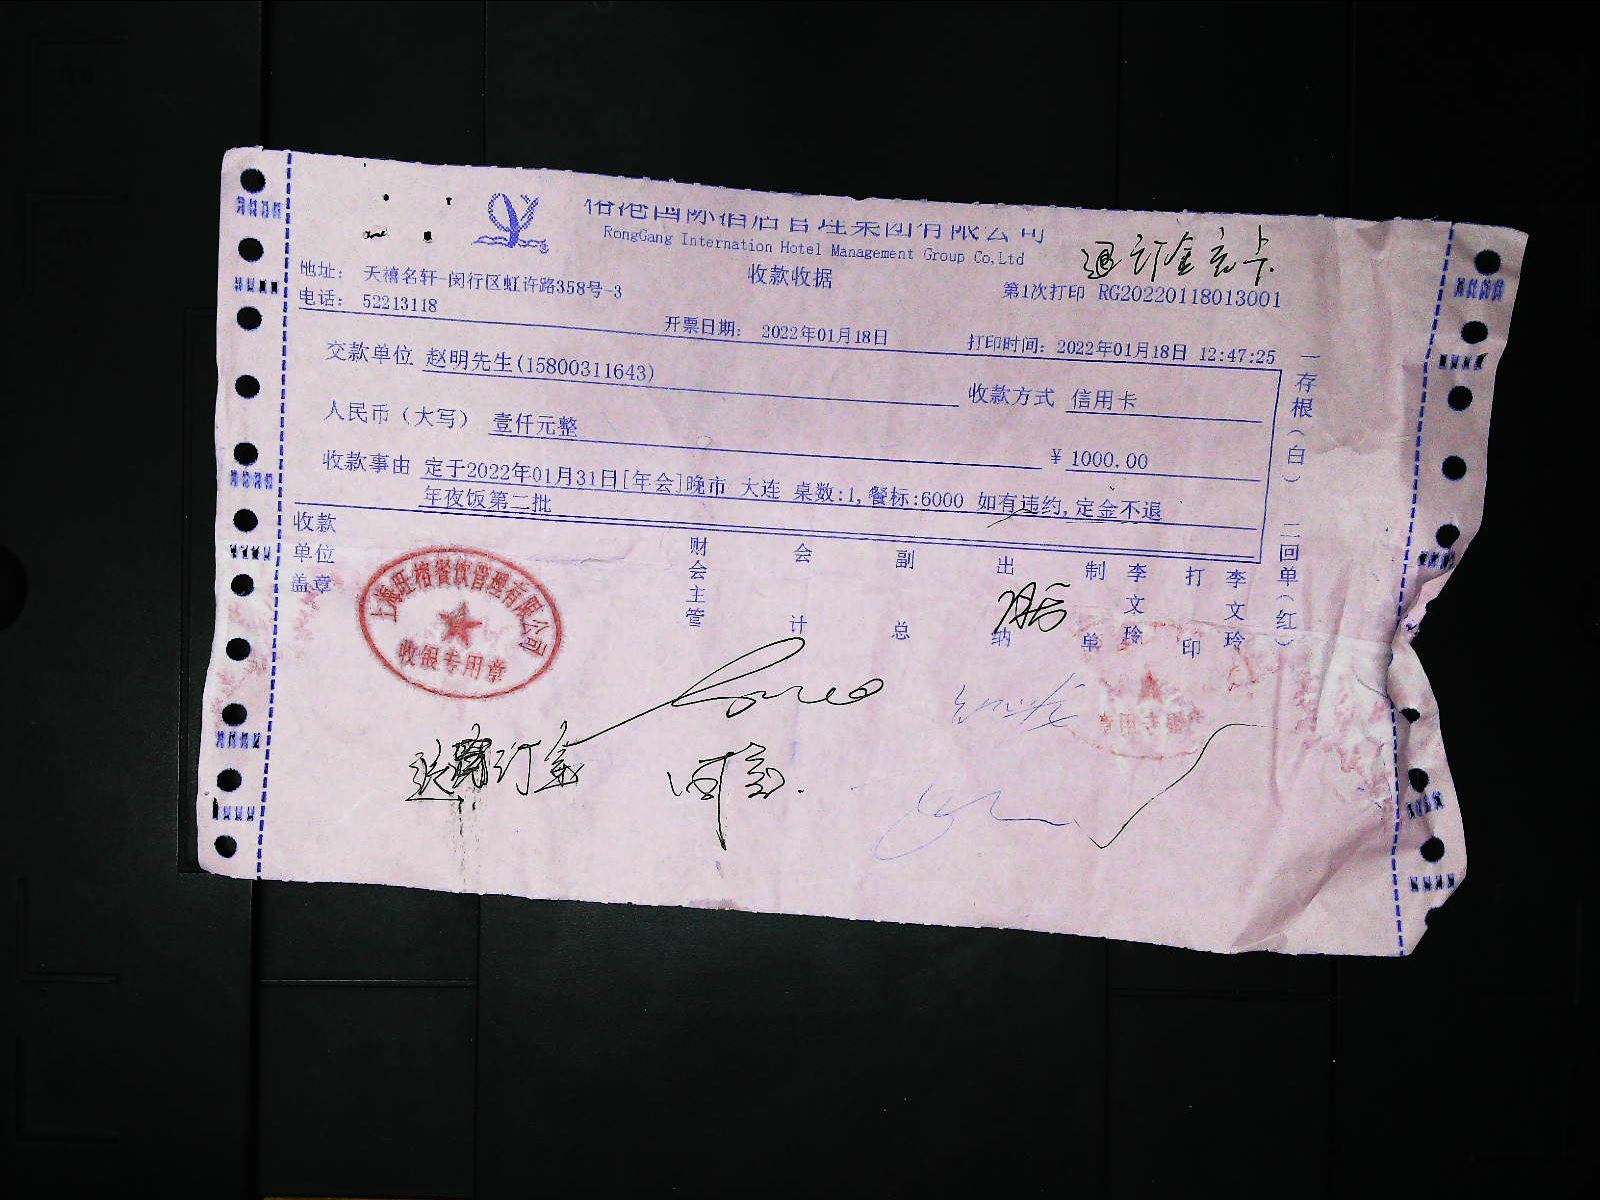 榕港国际酒店管理集团有限公司
RongGang Internation Hotel Management Group Co.Ltd
收款收据
退订金
卡
地址： 天禧名轩-闵行区虹许路358号-3
第1次打印 RG20220118013001
电话： 52213118
开票日期： 2022年01月18日
打印时间：2022年01月18日 12:47:25
交款单位 赵明先生(15800311643)
收款方式 信用卡
人民币（大写） 壹仟元整
¥ 1000.00
收款事由 定于2022年01月31日[年会]晚市 大连 桌数:1,餐标:6000 如有违约,定金不退
年夜饭第二批
收款单位盖章
财会主管
会计
副总
出纳
制单 李文玲
打印 李文玲
一存根（白） 二回单（红）
上海旺榕餐饮管理有限公司
收银专用章
订金